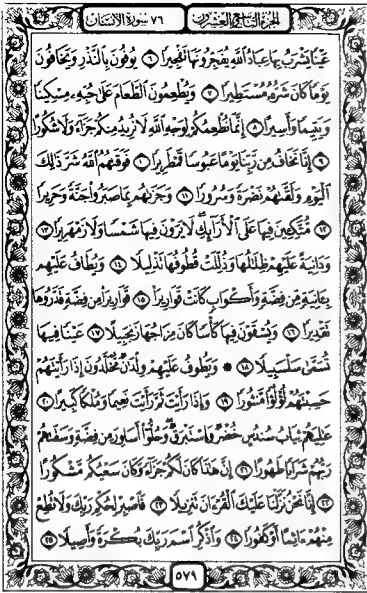 الجزء التاسع والعشرون ٧٦ سورة الإنسان
عَيْنًا يَشْرَبُ بِهَا عِبَادُ اللَّهِ يُفَجِّرُونَهَا تَفْجِيرًا ٦ يُوفُونَ بِالنَّذْرِ وَيَخَافُونَ
يَوْمًا كَانَ شَرُّهُ مُسْتَطِيرًا ٧ وَيُطْعِمُونَ الطَّعَامَ عَلَى حُبِّهِ مِسْكِينًا
وَيَتِيمًا وَأَسِيرًا ٨ إِنَّمَا نُطْعِمُكُمْ لِوَجْهِ اللَّهِ لَا نُرِيدُ مِنكُمْ جَزَاءً وَلَا شُكُورًا
٩ إِنَّا نَخَافُ مِن رَّبِّنَا يَوْمًا عَبُوسًا قَمْطَرِيرًا ١٠ فَوَقَاهُمُ اللَّهُ شَرَّ ذَلِكَ
الْيَوْمِ وَلَقَّاهُمْ نَضْرَةً وَسُرُورًا ١١ وَجَزَاهُم بِمَا صَبَرُوا جَنَّةً وَحَرِيرًا
١٢ مُّتَّكِئِينَ فِيهَا عَلَى الْأَرَائِكِ لَا يَرَوْنَ فِيهَا شَمْسًا وَلَا زَمْهَرِيرًا ١٣
وَدَانِيَةً عَلَيْهِمْ ظِلَالُهَا وَذُلِّلَتْ قُطُوفُهَا تَذْلِيلًا ١٤ وَيُطَافُ عَلَيْهِم
بِآنِيَةٍ مِّن فِضَّةٍ وَأَكْوَابٍ كَانَتْ قَوَارِيرَا ١٥ قَوَارِيرَا مِن فِضَّةٍ قَدَّرُوهَا
تَقْدِيرًا ١٦ وَيُسْقَوْنَ فِيهَا كَأْسًا كَانَ مِزَاجُهَا زَنجَبِيلًا ١٧ عَيْنًا فِيهَا
تُسَمَّى سَلْسَبِيلًا ١٨ ۞ وَيَطُوفُ عَلَيْهِمْ وِلْدَانٌ مُّخَلَّدُونَ إِذَا رَأَيْتَهُمْ
حَسِبْتَهُمْ لُؤْلُؤًا مَّنثُورًا ١٩ وَإِذَا رَأَيْتَ ثَمَّ رَأَيْتَ نَعِيمًا وَمُلْكًا كَبِيرًا ٢٠
عَالِيَهُمْ ثِيَابُ سُندُسٍ خُضْرٌ وَإِسْتَبْرَقٌ وَحُلُّوا أَسَاوِرَ مِن فِضَّةٍ وَسَقَاهُمْ
رَبُّهُمْ شَرَابًا طَهُورًا ٢١ إِنَّ هَذَا كَانَ لَكُمْ جَزَاءً وَكَانَ سَعْيُكُم مَّشْكُورًا
٢٢ إِنَّا نَحْنُ نَزَّلْنَا عَلَيْكَ الْقُرْآنَ تَنزِيلًا ٢٣ فَاصْبِرْ لِحُكْمِ رَبِّكَ وَلَا تُطِعْ
مِنْهُمْ آثِمًا أَوْ كَفُورًا ٢٤ وَاذْكُرِ اسْمَ رَبِّكَ بُكْرَةً وَأَصِيلًا ٢٥
٥٧٩